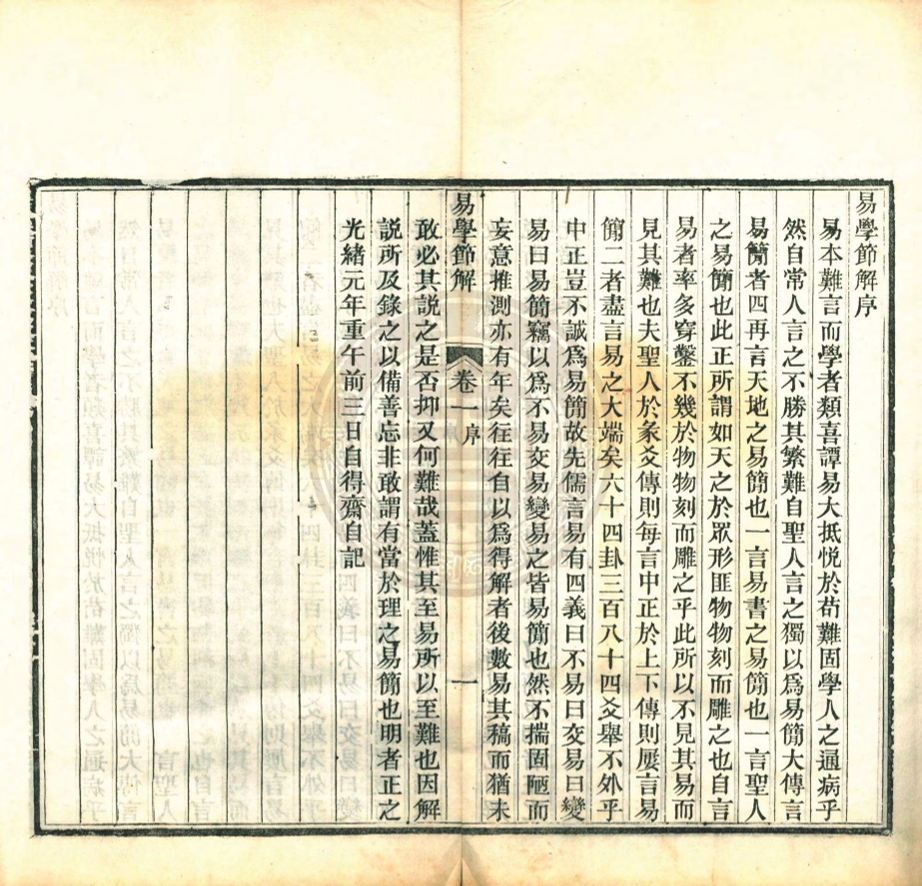 易學節解序
易本難言而學者類喜譚易大抵悦於苟難固學人之通病乎
然自常人言之不勝其繁難自聖人言之獨以爲易簡大傳言
易簡者四再言天地之易簡也一言易書之易簡也一言聖人
之易簡也此正所謂如天之於眾形匪物物刻而雕之也自言
易者率多穿鑿不幾於物物刻而雕之乎此所以不見其易而
見其難也夫聖人於彖爻傳則每言中正於上下傳則屢言易
簡二者盡言易之大端矣六十四卦三百八十四爻舉不外乎
中正豈不誠爲易簡故先儒言易有四義曰不易曰交易曰變
易曰易簡竊以爲不易交易變易之皆易簡也然不揣固陋而
妄意推測亦有年矣往往自以爲得解者後數易其稿而猶未
易學節解 卷一 序 一
敢必其説之是否抑又何難哉蓋惟其至易所以至難也因解
説所及錄之以備善忘非敢謂有當於理之易簡也明者正之
光緒元年重午前三日自得齋自記